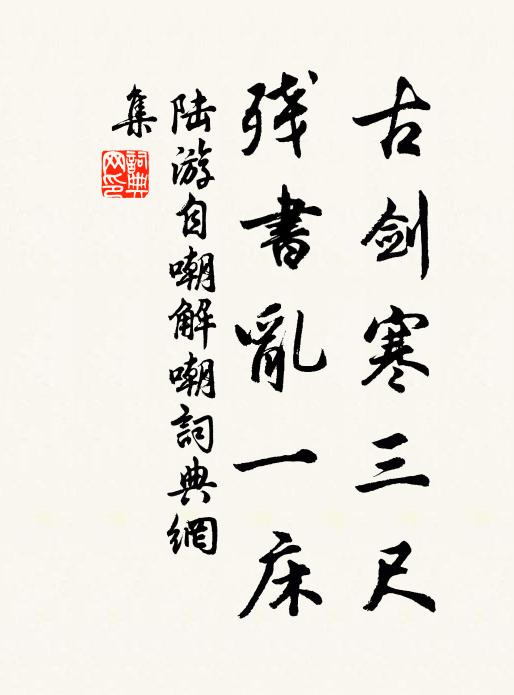 古剑寒三尺
残書亂一床
陆游自嘲解嘲詞典網
集
詞典
网印